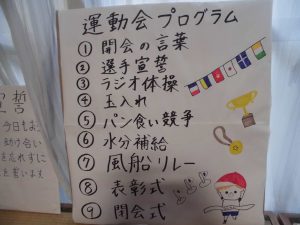 運動会プログラム
① 開会の言葉
② 選手宣誓
③ ラジオ体操
④ 玉入れ
⑤ パン食い競争
⑥ 水分補給
⑦ 風船リレー
⑧ 表彰式
⑨ 閉会式
誓
今日もお
助け合い
を忘れずに
を誓います